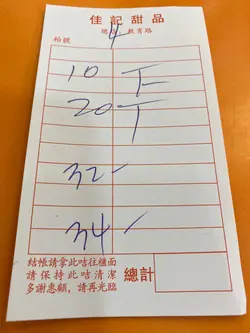 佳記甜品
總店：教育路
枱號 4
10 下
20 丁
32 -
34 -
結帳請拿此咭往櫃面
請保持此咭清潔
多謝惠顧，請再光臨
總計